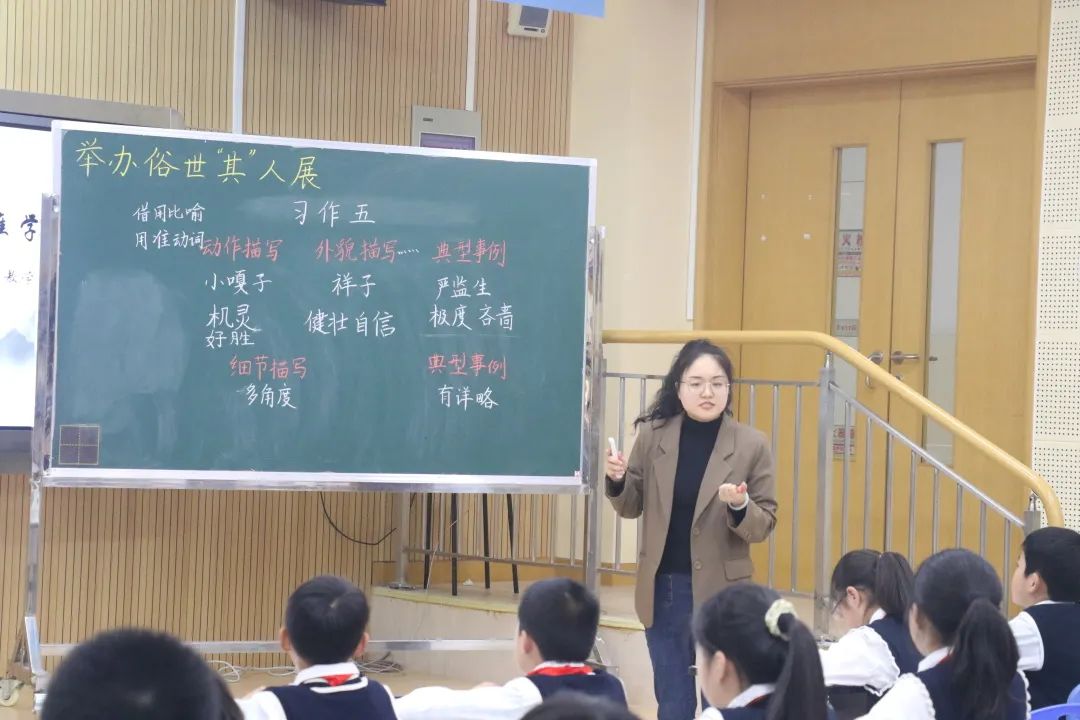 举办俗世“其”人展
借用比喻 习作五
用准动词
动作描写 外貌描写…… 典型事例
小嘎子 祥子 严监生
机灵 健壮自信 极度吝啬
好胜
细节描写 典型事例
多角度 有详略